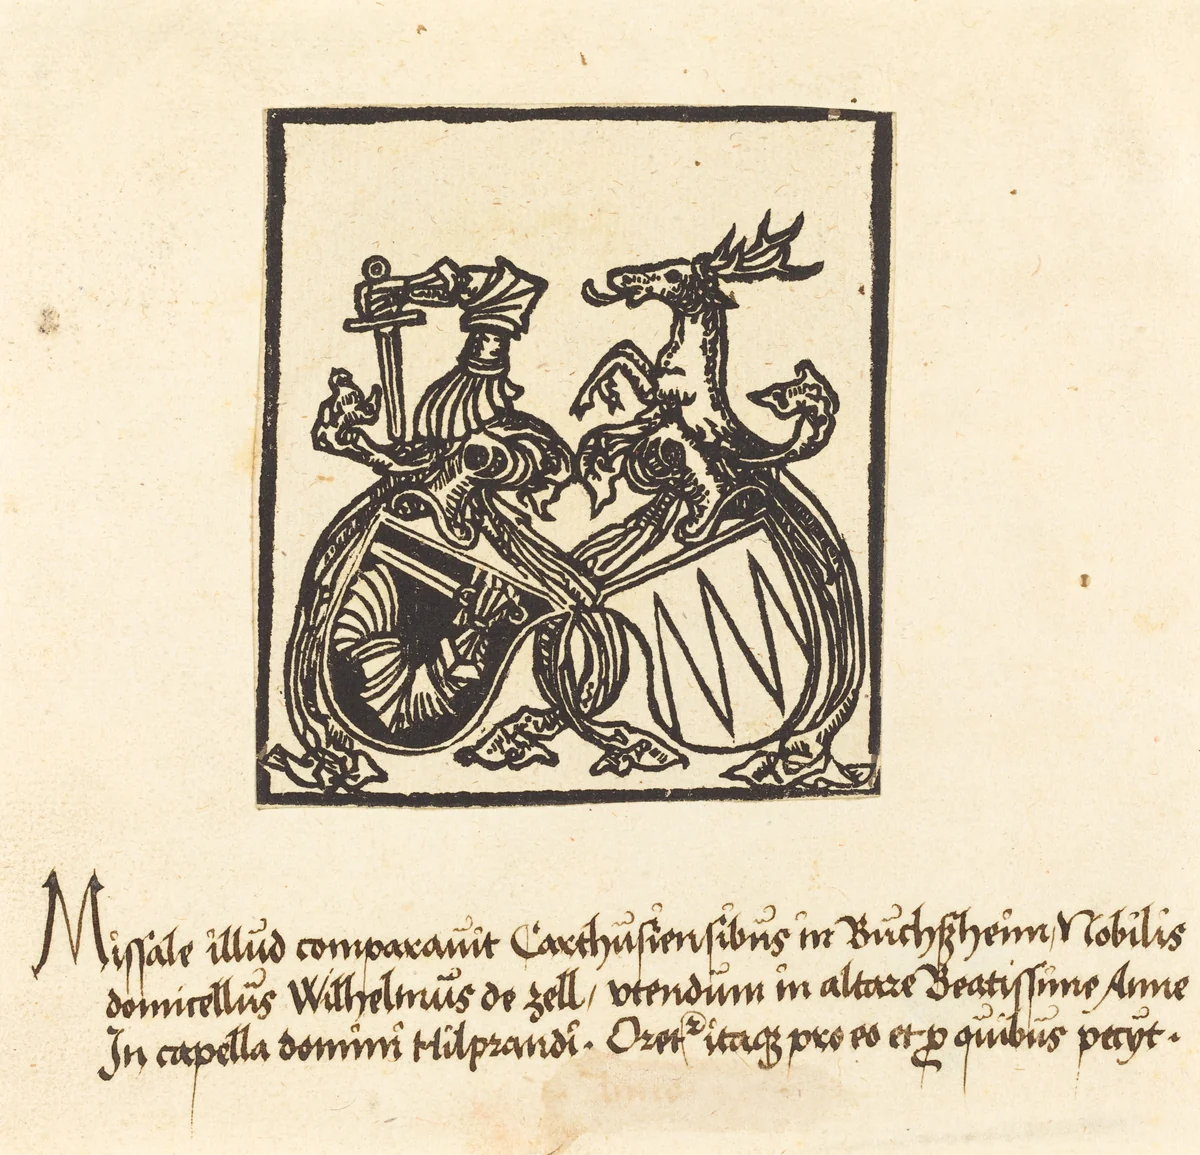 Missale illud comparauit Carthusiensibus in Buchßheim, Nobilis
domicellus Wilhelmus de zell, vtendum in altare Beatissime Anne
In capella domini Hilprandi. Oretꝛ itaqꝫ pro eo et ꝑ quibus petyt.